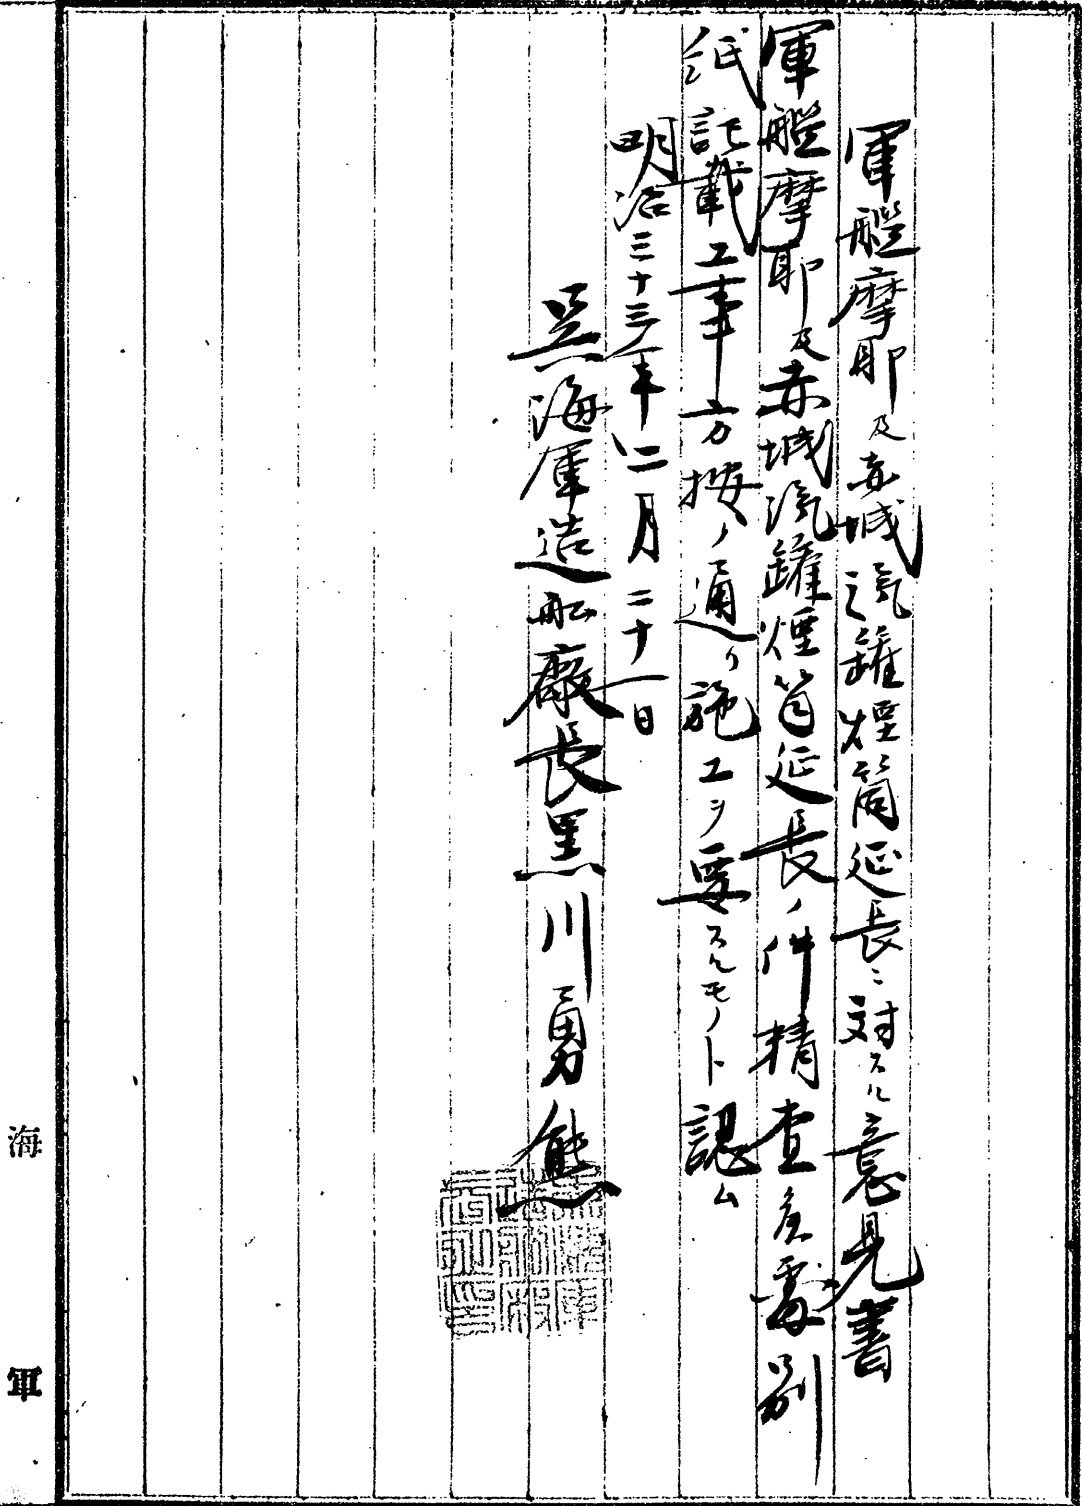 軍艦摩耶及赤城汽罐煙筒延長ニ対スル意見書
軍艦摩耶及赤城汽罐煙筒延長ノ件精査候處別
紙記載工事方按ノ通リ施工ヲ要スルモノト認ム
明治三十三年二月二十一日
呉海軍造船廠長黒川勇熊
海軍